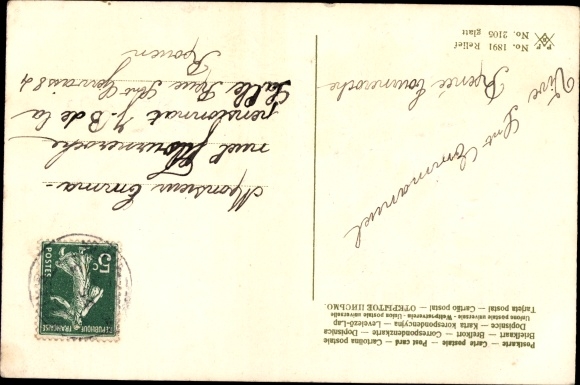 Postkarte — Carte postale — Post card — Cartolina postale
Briefkaart — Brefkort — Correspondenzkarte — Dopisnica
Dopisnice — Karta korespondencyjna — Levelező-Lap
Unione postale universale - Weltpostverein - Union postale universelle
Tarjeta postal — Cartão postal — ОТКРЫТОЕ ПИСЬМО.
Vive Snt Emmanuel
Renée Tourneroche
Monsieur Emma-
nuel Tourneroche
Pensionnat J B de la
Salle Rue Snt Gervais 84
Rouen
5c
POSTES
REPUBLIQUE FRANÇAISE
No. 1891 Relief
No. 2105 glatt